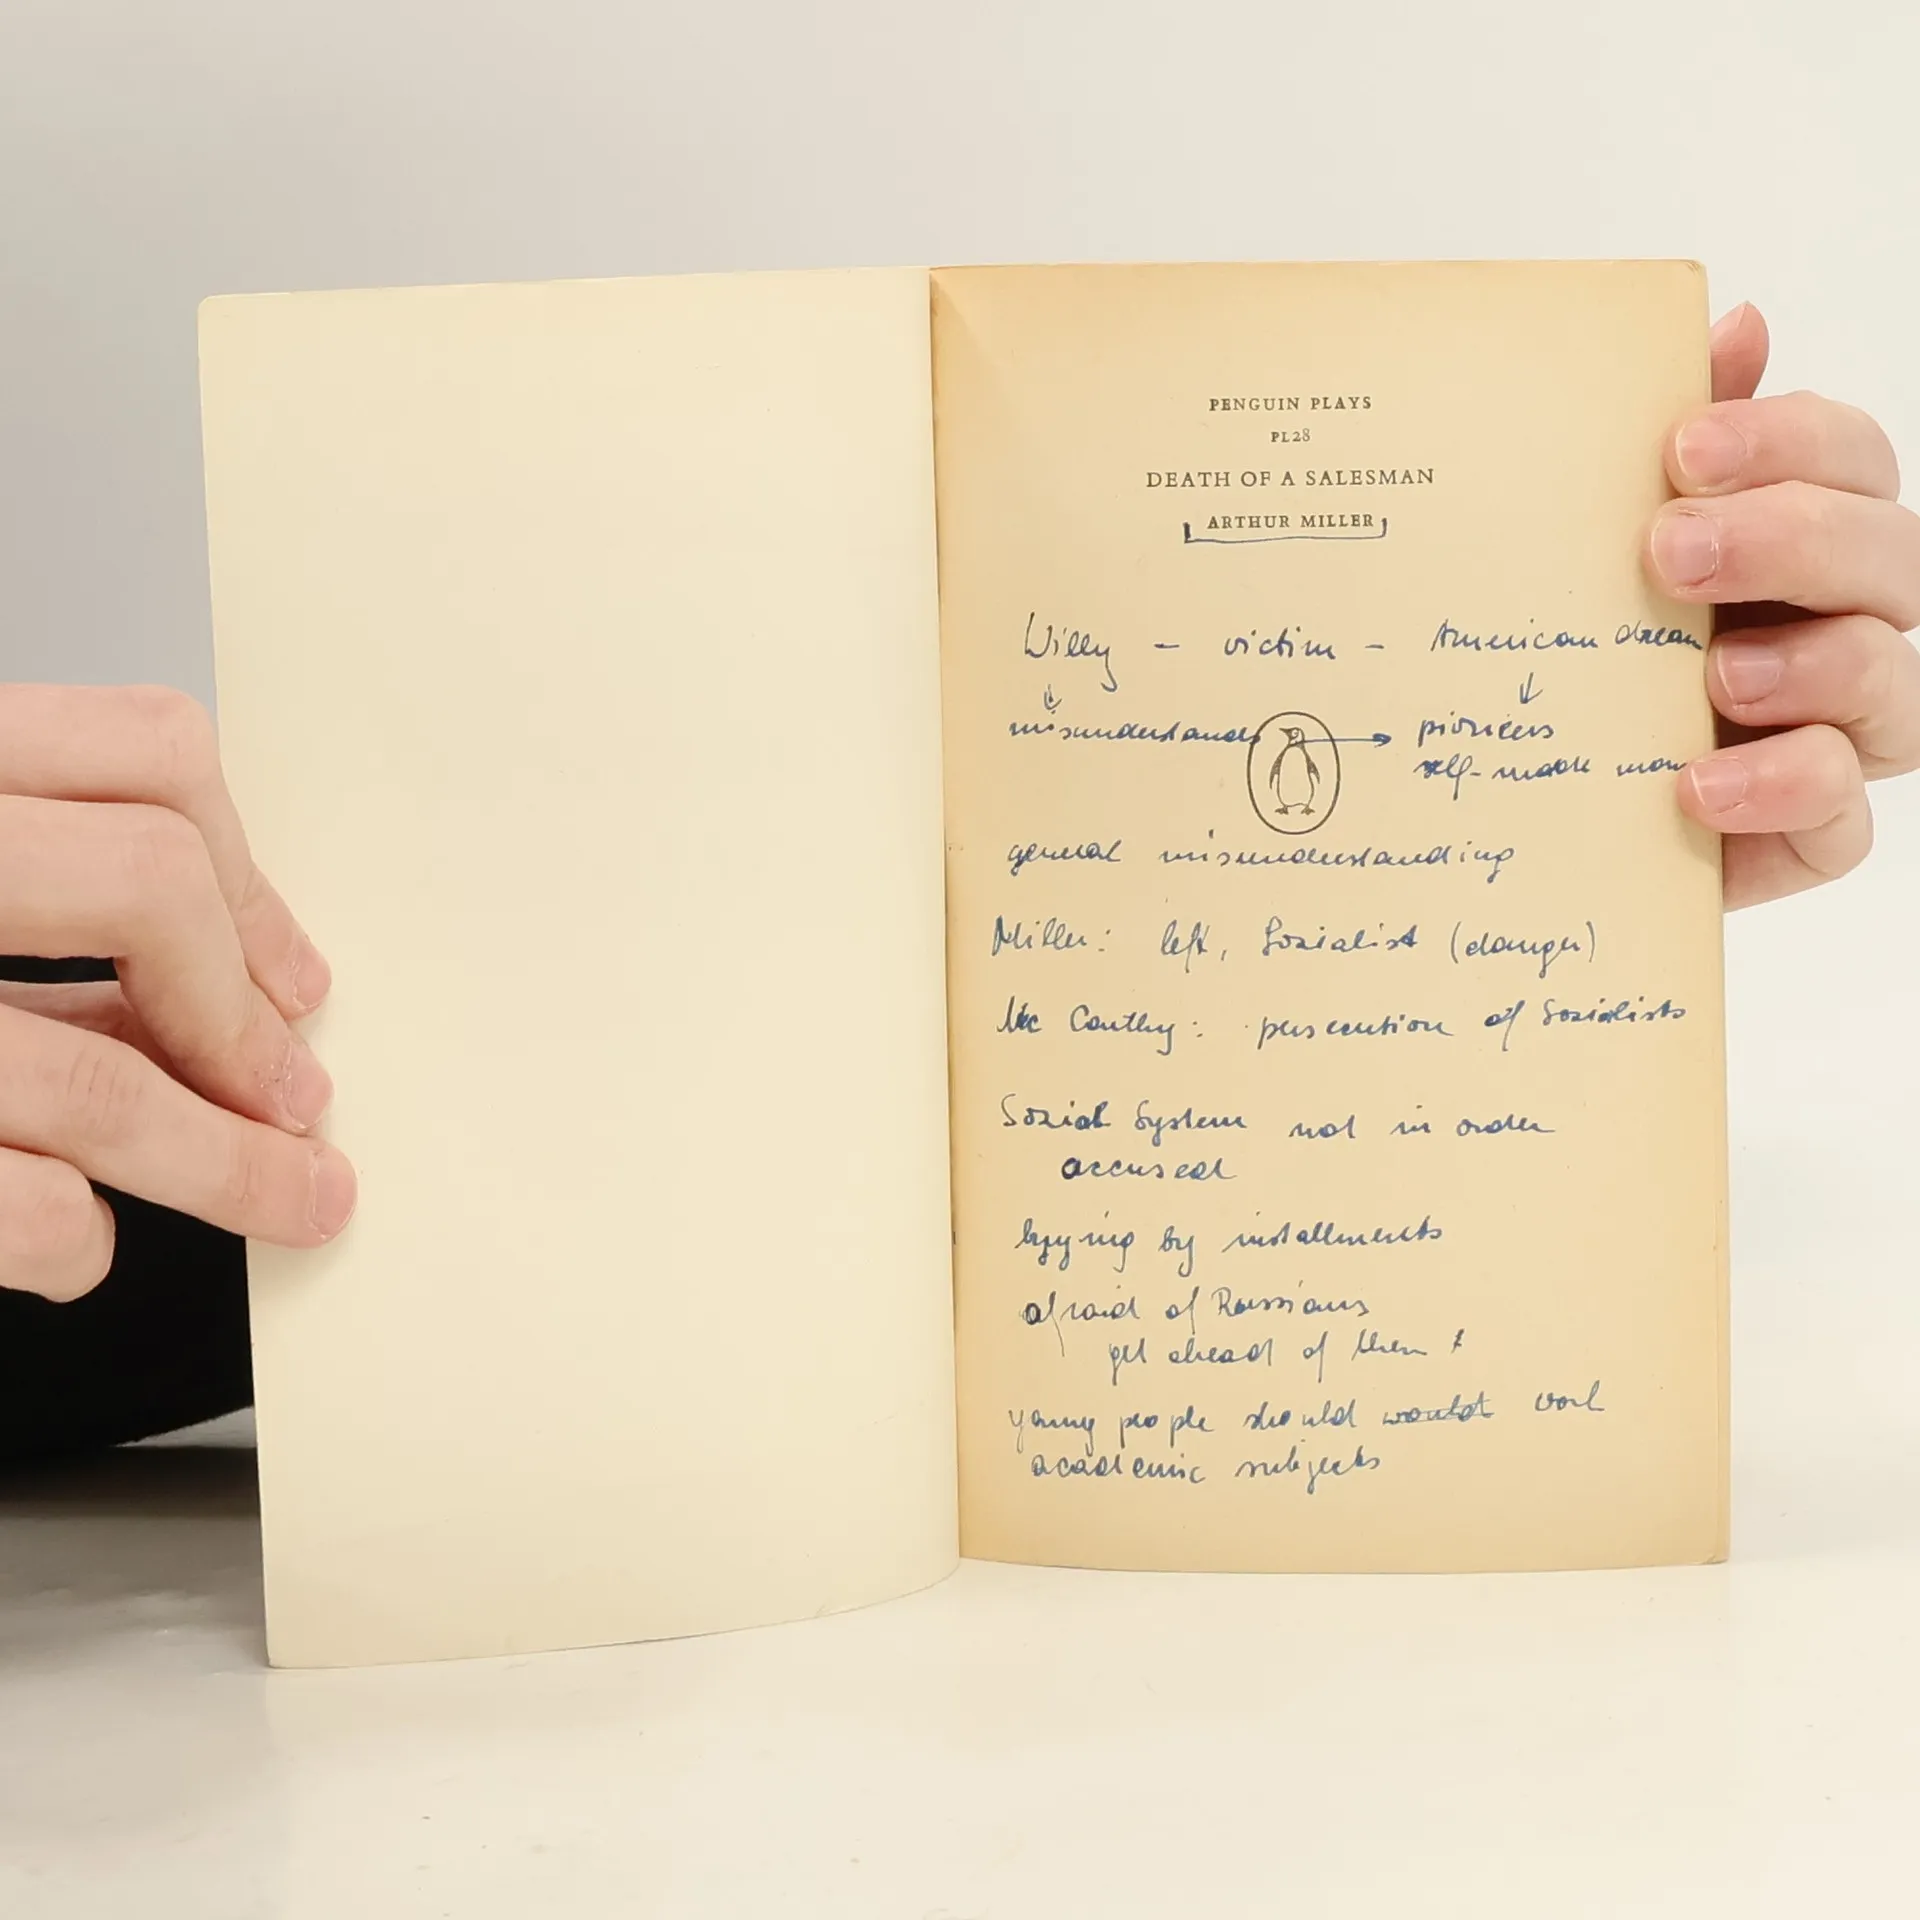 PENGUIN PLAYS
PL28
DEATH OF A SALESMAN
ARTHUR MILLER
Willy – victim – American dream
misunderstands → pioneers
self-made man
general misunderstanding
Miller: left, Sozialist (danger)
Mc Carthy: persecution of Sozialists
Sozial System not in order
accused
byying by installments
afraid of Russians
get ahead of them
young people should would
academic subjects